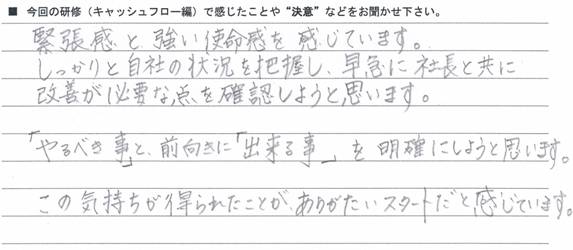 ■ 今回の研修（キャッシュフロー編）で感じたことや“決意”などをお聞かせ下さい。
緊張感と強い使命感を感じています。
しっかりと自社の状況を把握し、早急に社長と共に
改善が必要な点を確認しようと思います。
「やるべき事」と、前向きに「出来る事」を明確にしようと思います。
この気持ちが得られたことが、ありがたいスタートだと感じています。